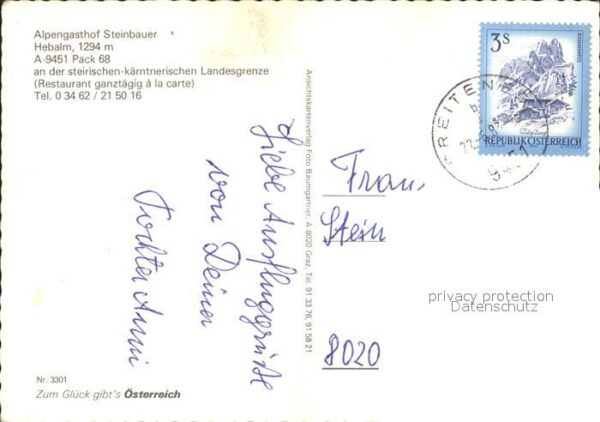 Alpengasthof Steinbauer
Hebalm, 1294 m
A-9451 Pack 68
an der steirischen-kärntnerischen Landesgrenze
(Restaurant ganztägig à la carte)
Tel. 0 34 62 / 21 50 16
Liebe Ausflugsgrüsse
von Deiner
Tochter Anni
Nr. 3301
Zum Glück gibt's Österreich
Ansichtskartenverlag Foto Baumgartner, A 8020 Graz, Tel. 91 33 76, 91 58 21
3 S
REPUBLIK ÖSTERREICH
9451
Frau
Stein
8020
privacy protection
Datenschutz